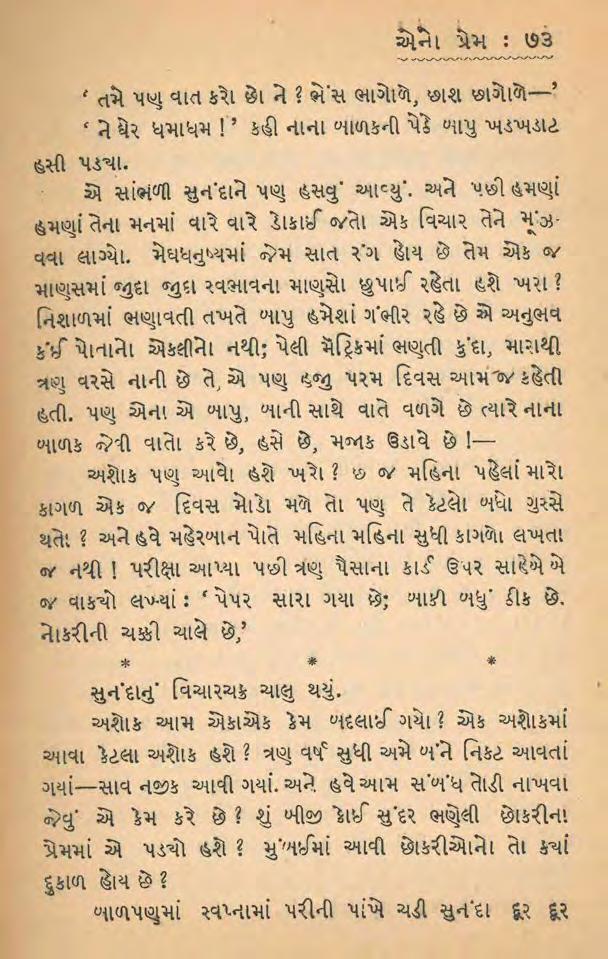 એનો પ્રેમ : ૭૩
‘ તમે પણ વાત કરો છો ને ? ભેંસ ભાગોળે, છાશ છાગોળે—’
‘ ને ઘેર ધમાધમ !’ કહી નાના બાળકની પેઠે બાપુ ખડખડાટ
હસી પડયા.
એ સાંભળી સુનંદાને પણ હસવું આવ્યું. અને પછી હમણાં
હમણાં તેના મનમાં વારે વારે ડોકાઈ જતો એક વિચાર તેને મૂંઝ-
વવા લાગ્યો. મેઘધનુષ્યમાં જેમ સાત રંગ હોય છે તેમ એક જ
માણસમાં જુદા જુદા સ્વભાવના માણસો છુપાઈ રહેતા હશે ખરા ?
નિશાળમાં ભણાવતી તખતે બાપુ હમેશાં ગંભીર રહે છે એ અનુભવ
કંઈ પોતાનો એકલીનો નથી; પેલી મૅટ્રિકમાં ભણતી કુંદા, મારાથી
ત્રણ વરસે નાની છે તે, એ પણ હજુ પરમ દિવસ આમ જ કહેતી
હતી. પણ એના એ બાપુ, બાની સાથે વાતે વળગે છે ત્યારે નાના
બાળક જેવી વાતો કરે છે, હસે છે, મજાક ઉડાવે છે !—
અશોક પણ આવો હશે ખરો ? છ જ મહિના પહેલાં મારો
કાગળ એક જ દિવસ મોડો મળે તો પણ તે કેટલો બધો ગુસ્સે
થતો ? અને હવે મહેરબાન પોતે મહિના મહિના સુધી કાગળો લખતા
જ નથી ! પરીક્ષા આપ્યા પછી ત્રણ પૈસાના કાર્ડ ઉપર સાહેબે બે
જ વાકયો લખ્યાં : ‘ પેપર સારા ગયા છે; બાકી બધું ઠીક છે.
નોકરીની ચક્કી ચાલે છે,’
* * *
સુનંદાનું વિચારચક્ર ચાલુ થયું.
અશોક આમ એકાએક કેમ બદલાઈ ગયો ? એક અશોકમાં
આવા કેટલા અશોક હશે ? ત્રણ વર્ષ સુધી અમે બંને નિકટ આવતાં
ગયાં—સાવ નજીક આવી ગયાં. અને હવે આમ સંબંધ તોડી નાખવા
જેવું એ કેમ કરે છે ? શું બીજી કોઈ સુંદર ભણેલી છોકરીના
પ્રેમમાં એ પડયો હશે ? મુંબઈમાં આવી છોકરીઓનો તો કયાં
દુકાળ હોય છે ?
બાળપણમાં સ્વપ્નામાં પરીની પાંખે ચડી સુનંદા દૂર દૂર